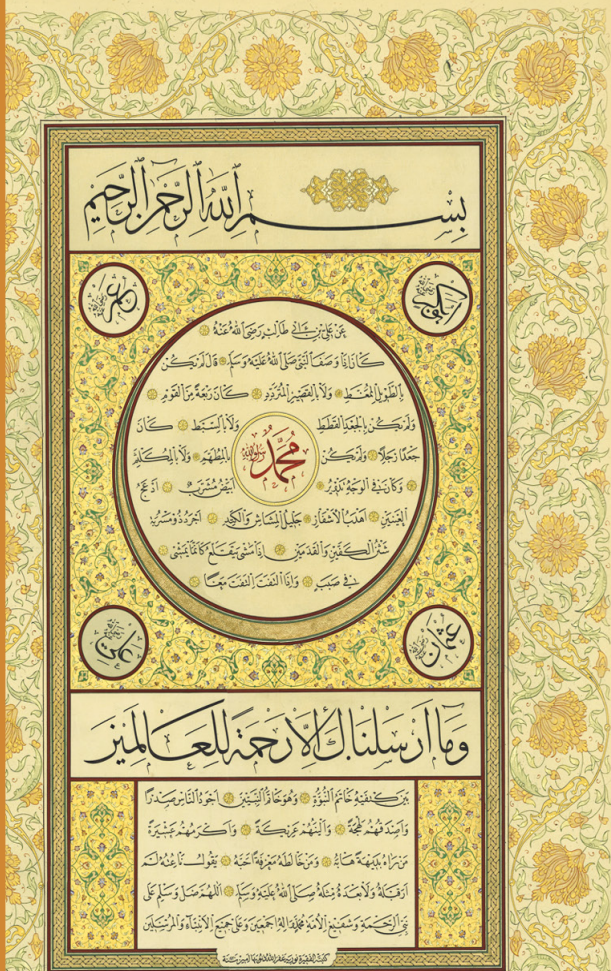 بِسْمِ اللّٰهِ الرَّحْمٰنِ الرَّحِيمِ
ابوبكر
عمر
عَنْ عَلِيِّ بْنِ اَبِي طَالِبٍ رَضِيَ اللّٰهُ عَنْهُ
كَانَ اِذَا وَصَفَ النَّبِيَّ صَلَّى اللّٰهُ عَلَيْهِ وَسَلَّمَ قَالَ لَمْ يَكُنْ
بِالطَّوِيلِ الْمُمَّغِطِ وَلَا بِالْقَصِيرِ الْمُتَرَدِّدِ كَانَ رَبْعَةً مِنَ الْقَوْمِ
وَلَمْ يَكُنْ بِالْجَعْدِ الْقَطَطِ وَلَا بِالسَّبْطِ كَانَ
جَعْدًا رَجِلًا وَلَمْ يَكُنْ بِالْمُطَهَّمِ وَلَا بِالْمُكَلْثَمِ
مُحَمَّدٌ
وَكَانَ فِي الْوَجْهِ تَدْوِيرٌ اَبْيَضُ مُشْرَبٌ اَدْعَجُ
الْعَيْنَيْنِ اَهْدَبُ الْاَشْفَارِ جَلِيلُ الْمُشَاشِ وَالْكَتَدِ اَجْرَدُ ذُو مَسْرُبَةٍ
شَثْنُ الْكَفَّيْنِ وَالْقَدَمَيْنِ اِذَا مَشَى يَتَقَلَّعُ كَاَنَّمَا يَمْشِي
فِي صَبَبٍ وَاِذَا الْتَفَتَ الْتَفَتَ مَعًا
عثمان
علي
وَمَا اَرْسَلْنَاكَ اِلَّا رَحْمَةً لِلْعَالَمِينَ
بَيْنَ كَتِفَيْهِ خَاتَمُ النُّبُوَّةِ وَهُوَ خَاتَمُ النَّبِيِّينَ اَجْوَدُ النَّاسِ صَدْرًا
وَاَصْدَقُهُمْ لَهْجَةً وَاَلْيَنُهُمْ عَرِيكَةً وَاَكْرَمُهُمْ عَشِيرَةً
مَنْ رَاٰهُ بَدِيهَةً هَابَهُ وَمَنْ خَالَطَهُ مَعْرِفَةً اَحَبَّهُ يَقُولُ نَاعِتُهُ لَمْ
اَرَ قَبْلَهُ وَلَا بَعْدَهُ مِثْلَهُ صَلَّى اللّٰهُ عَلَيْهِ وَسَلَّمَ اَللّٰهُمَّ صَلِّ وَسَلِّمْ عَلَى
نَبِيِّ الرَّحْمَةِ وَشَفِيعِ الْاُمَّةِ مُحَمَّدٍ وَاٰلِهِ اَجْمَعِينَ وَعَلَى جَمِيعِ الْاَنْبِيَاءِ وَالْمُرْسَلِينَ